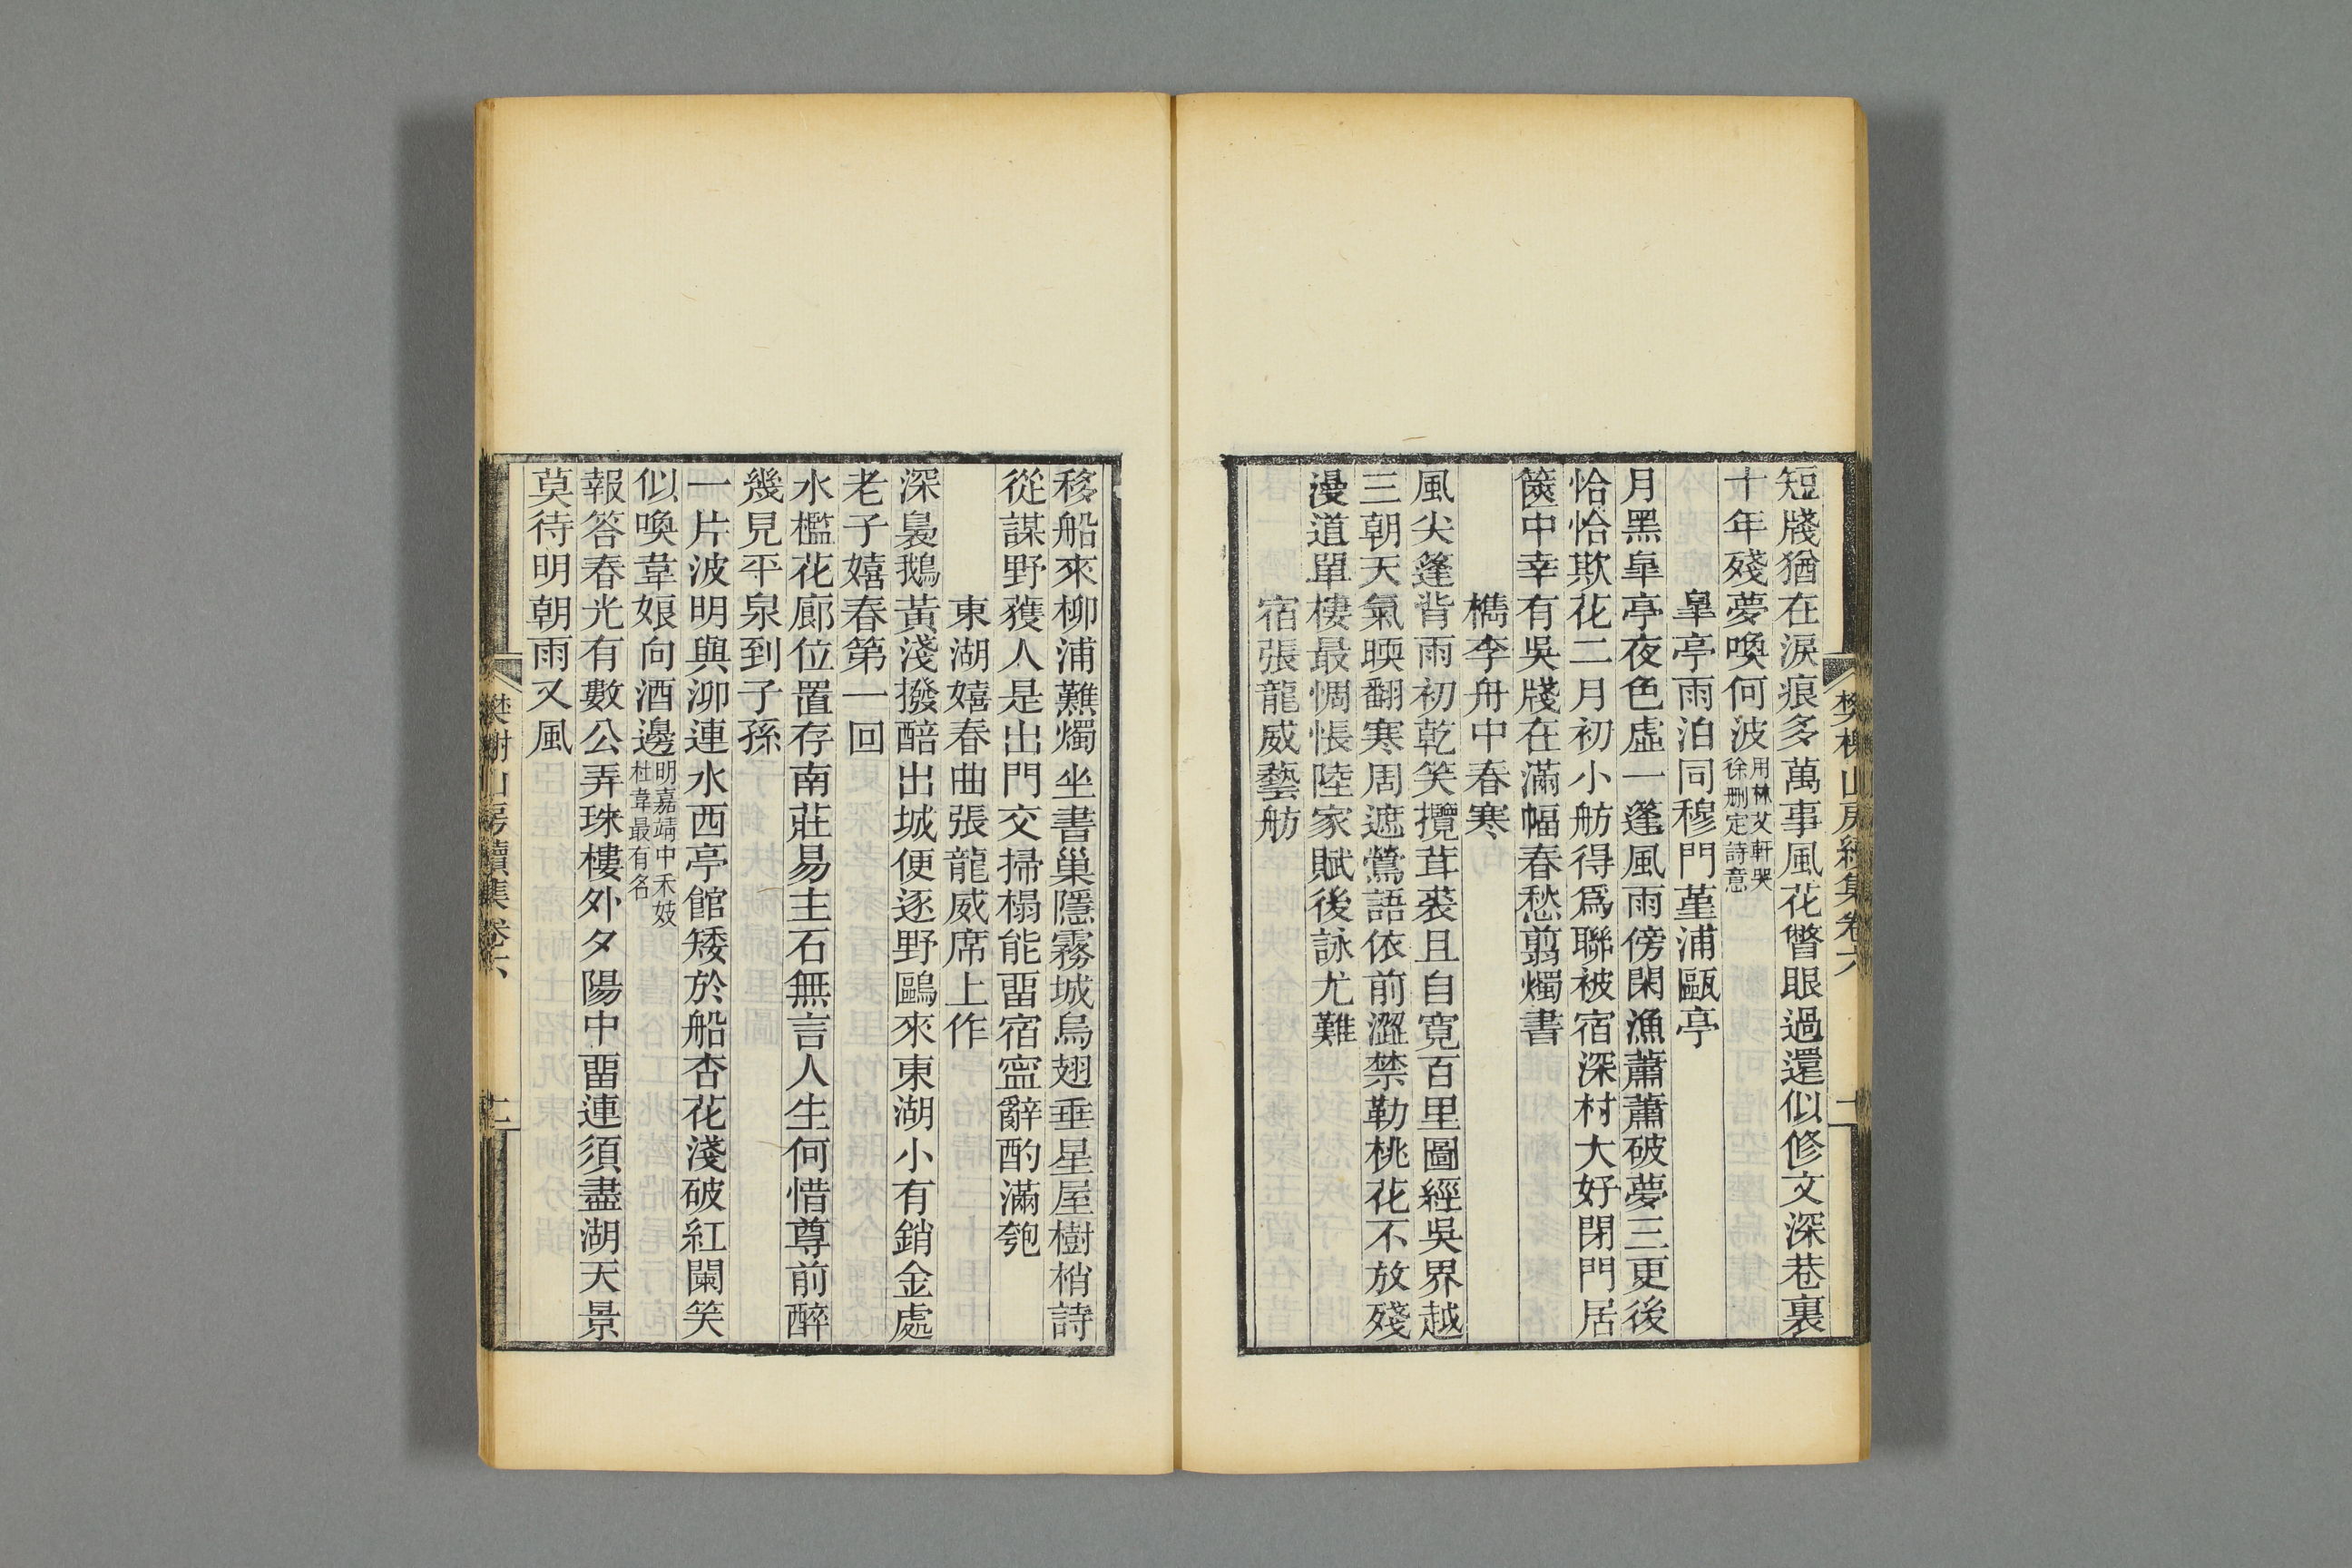 短牋猶在淚痕多萬事風花瞥眼過還似修文深巷裏
十年殘夢喚何波用林艾軒哭徐删定詩意
皐亭雨泊同穆門堇浦甌亭
月黑皐亭夜色虛一蓬風雨傍閑漁蕭蕭破夢三更後
恰恰欺花二月初小舫得爲聯被宿深村大好閉門居
篋中幸有吳牋在滿幅春愁翦燭書
檇李舟中春寒
風尖蓬背雨初乾笑攬茸裘且自寬百里圖經吳界越
三朝天氣暎翻寒周遮鶯語依前澀禁勒桃花不放殘
漫道單棲最惆悵陸家賦後詠尤難
宿張龍威藝舫
移船來柳浦蘸燭坐書巢隱霧城烏翅垂星屋樹梢詩
從謀野獲人是出門交掃榻能畱宿寍辭酌滿匏
東湖嬉春曲張龍威席上作
深裊鵝黃淺撥醅出城便逐野鷗來東湖小有銷金處
老子嬉春第一回
水檻花廊位置存南莊易主石無言人生何惜尊前醉
幾見平泉到子孫
一片波明與泖連水西亭館矮於船杏花淺破紅闌笑
似喚韋娘向酒邊明嘉靖中禾妓杜韋最有名
報答春光有數公弄珠樓外夕陽中畱連須盡湖天景
莫待明朝雨又風
樊榭山房續集卷六